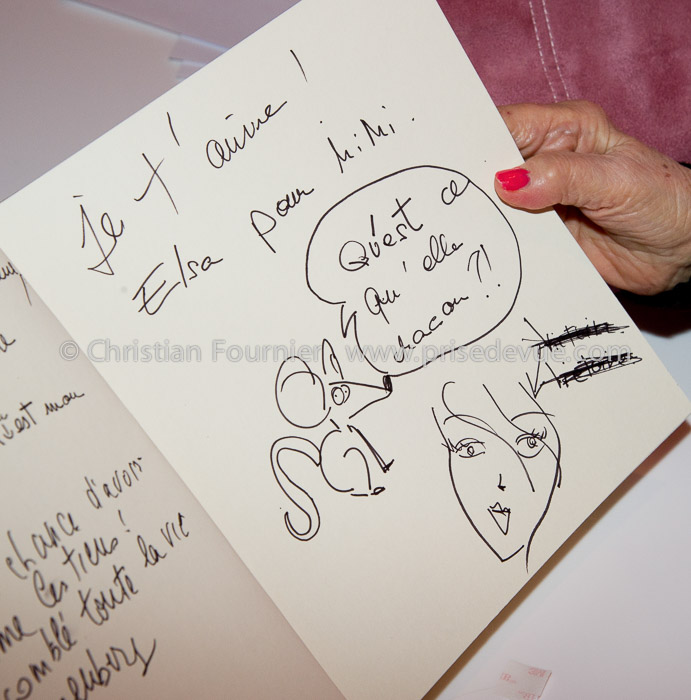 Je t'aime !
Elsa pour MiMi.
Qu'est ce
qu'elle
chacon ?!
© Christian Fournier www.prisedevue.com
n'est mon
chance d'avoir
les tiens !
comblé toute la vie